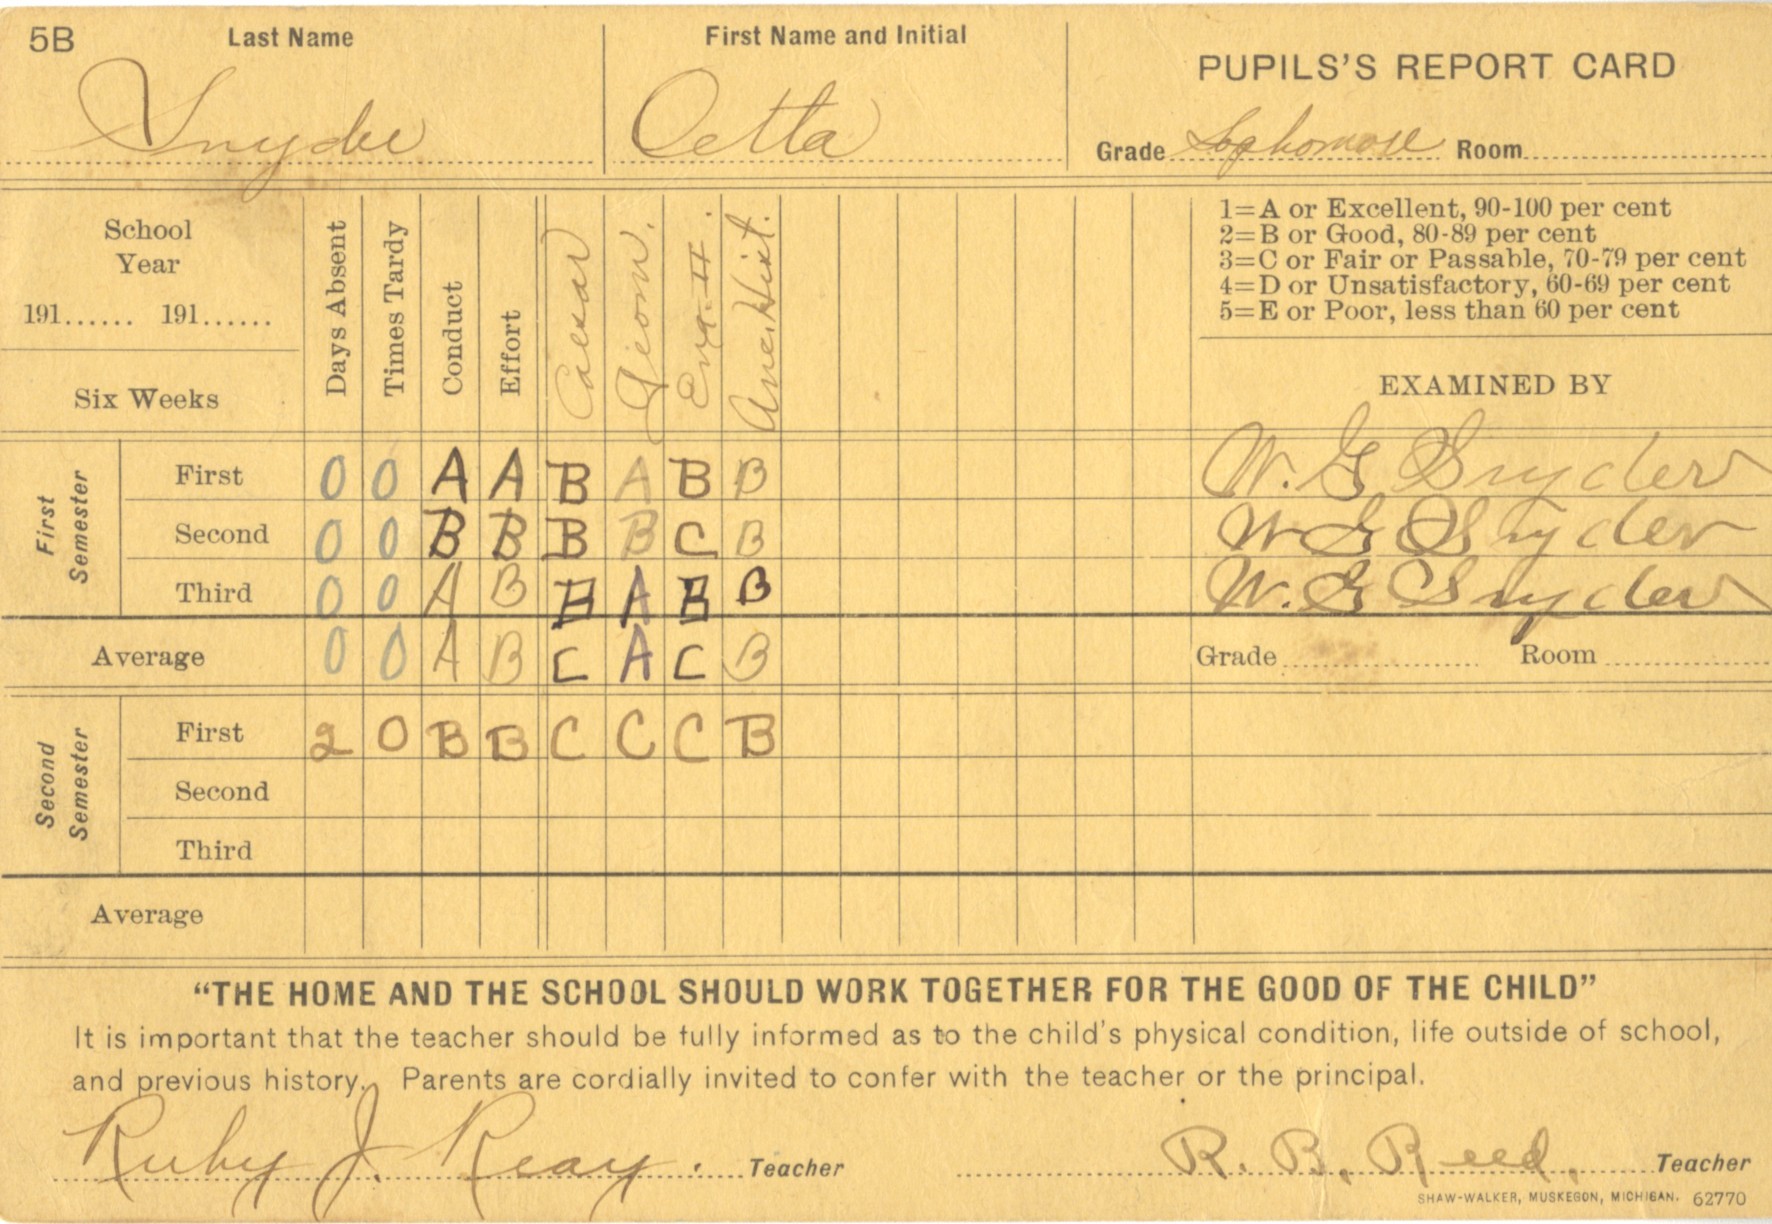 5B Last Name First Name and Initial PUPILS'S REPORT CARD
Snyder Oetta Grade Sophomore Room
School Year Days Absent Times Tardy Conduct Effort Caesar Geom. Eng. II. Anc. Hist.
191...... 191......
Six Weeks
1=A or Excellent, 90-100 per cent
2=B or Good, 80-89 per cent
3=C or Fair or Passable, 70-79 per cent
4=D or Unsatisfactory, 60-69 per cent
5=E or Poor, less than 60 per cent
EXAMINED BY
First Semester
First 0 0 A A B A B B W. G Snyder
Second 0 0 B B B B C B W G Snyder
Third 0 0 A B B A B B W. G Snyder
Average 0 0 A B C A C B Grade Room
Second Semester
First 2 0 B B C C C B
Second
Third
Average
“THE HOME AND THE SCHOOL SHOULD WORK TOGETHER FOR THE GOOD OF THE CHILD”
It is important that the teacher should be fully informed as to the child's physical condition, life outside of school,
and previous history. Parents are cordially invited to confer with the teacher or the principal.
Ruby J. Reay. Teacher R. B. Reed. Teacher
SHAW-WALKER, MUSKEGON, MICHIGAN. 62770